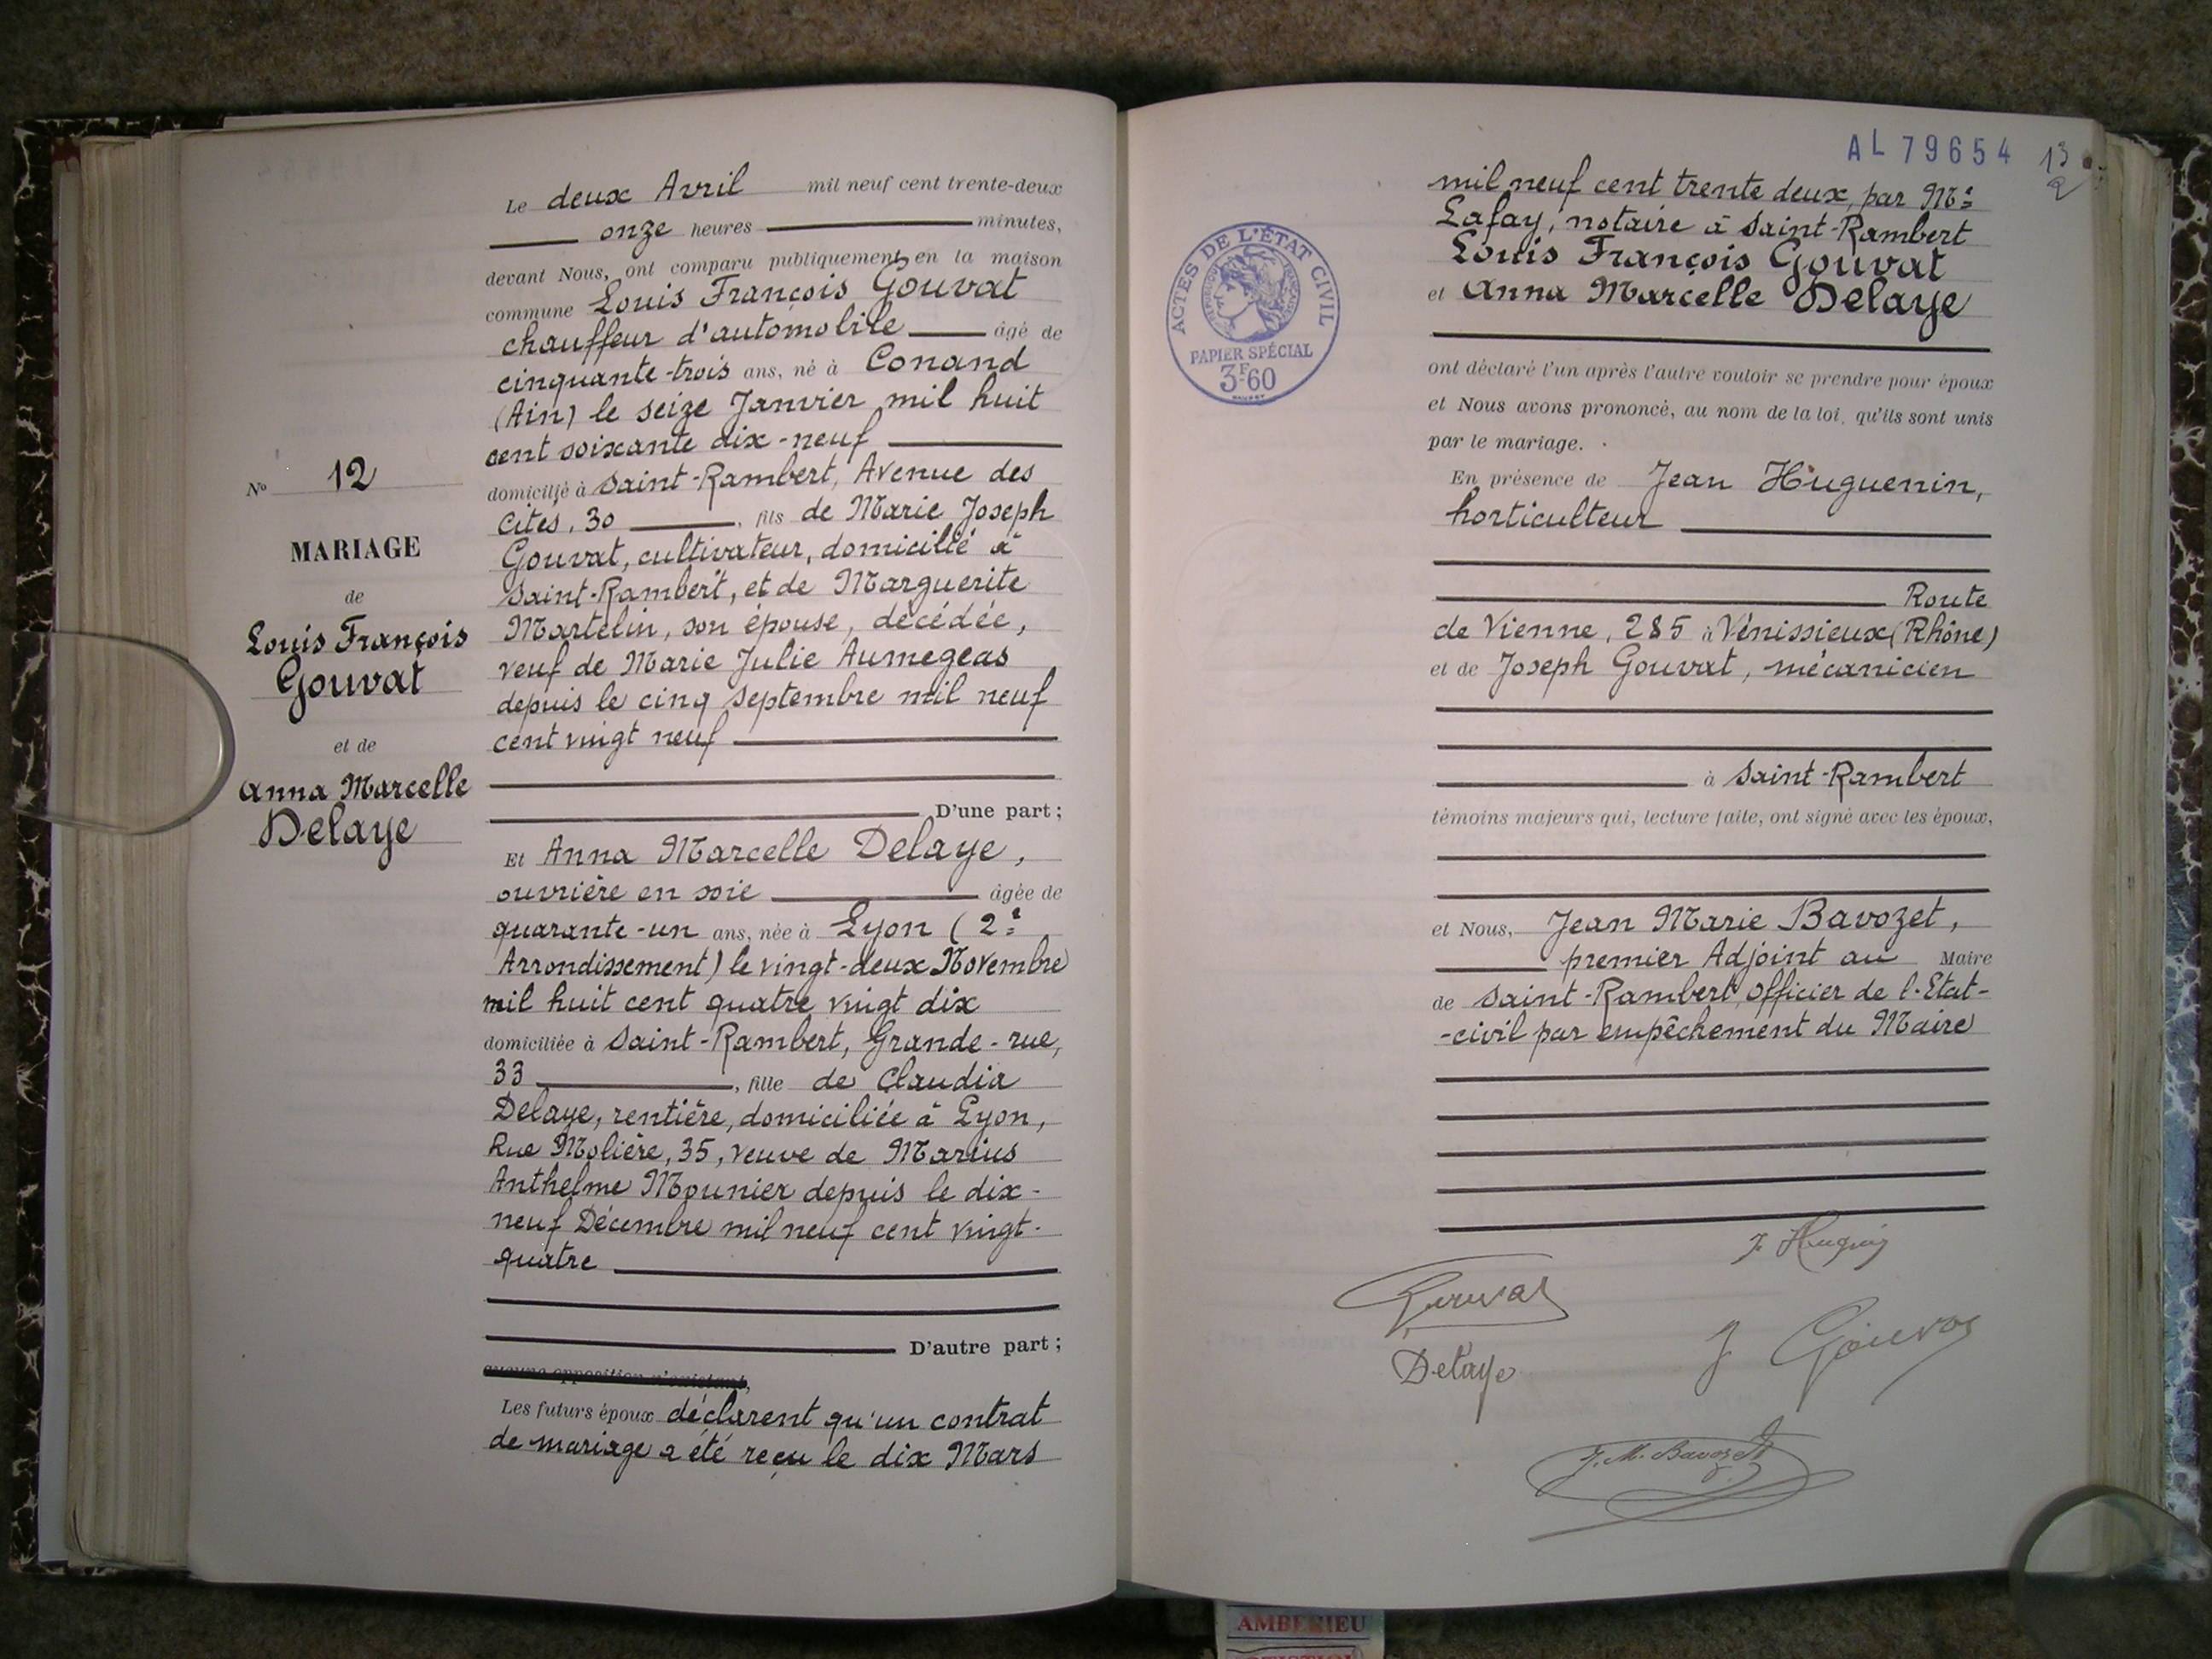 Nº 12
MARIAGE
de
Louis François
Gouvat
et de
Anna Marcelle
Delaye
Le deux Avril mil neuf cent trente-deux
onze heures minutes,
devant Nous, ont comparu publiquement en la maison
commune Louis François Gouvat
chauffeur d'automobile âgé de
cinquante-trois ans, né à Conand
(Ain) le seize Janvier mil huit
cent soixante dix-neuf
domicilié à Saint-Rambert, Avenue des
Cités, 30, fils de Marie Joseph
Gouvat, cultivateur, domicilié à
Saint-Rambert, et de Marguerite
Martelin, son épouse, décédée,
veuf de Marie Julie Aumegeas
depuis le cinq Septembre mil neuf
cent vingt neuf
D'une part;
Et Anna Marcelle Delaye,
ouvrière en soie âgée de
quarante-un ans, née à Lyon (2e
Arrondissement) le vingt-deux Novembre
mil huit cent quatre vingt dix
domiciliée à Saint-Rambert, Grande-rue,
33, fille de Claudia
Delaye, rentière, domiciliée à Lyon,
Rue Molière, 35, veuve de Marius
Anthelme Mounier depuis le dix-
neuf Décembre mil neuf cent vingt-
quatre
D'autre part;
aucune opposition n'existant,
Les futurs époux déclarent qu'un contrat
de mariage a été reçu le dix Mars
AL 79654
13
2
mil neuf cent trente deux, par Me
Lafay, notaire à Saint-Rambert
Louis François Gouvat
et Anna Marcelle Delaye
ACTES DE L'ÉTAT CIVIL
RÉPUBLIQUE FRANÇAISE
PAPIER SPÉCIAL
3F60
ont déclaré l'un après l'autre vouloir se prendre pour époux
et Nous avons prononcé, au nom de la loi, qu'ils sont unis
par le mariage.
En présence de Jean Huguenin,
horticulteur
Route
de Vienne, 285 à Vénissieux (Rhône)
et de Joseph Gouvat, mécanicien
à Saint-Rambert
témoins majeurs qui, lecture faite, ont signé avec les époux,
et Nous, Jean Marie Bavozet,
premier Adjoint au Maire
de Saint-Rambert, Officier de l'Etat-
-civil par empêchement du Maire
Gouvat
Delaye
J Gouvat
J. M. Bavozet
AMBERIEU